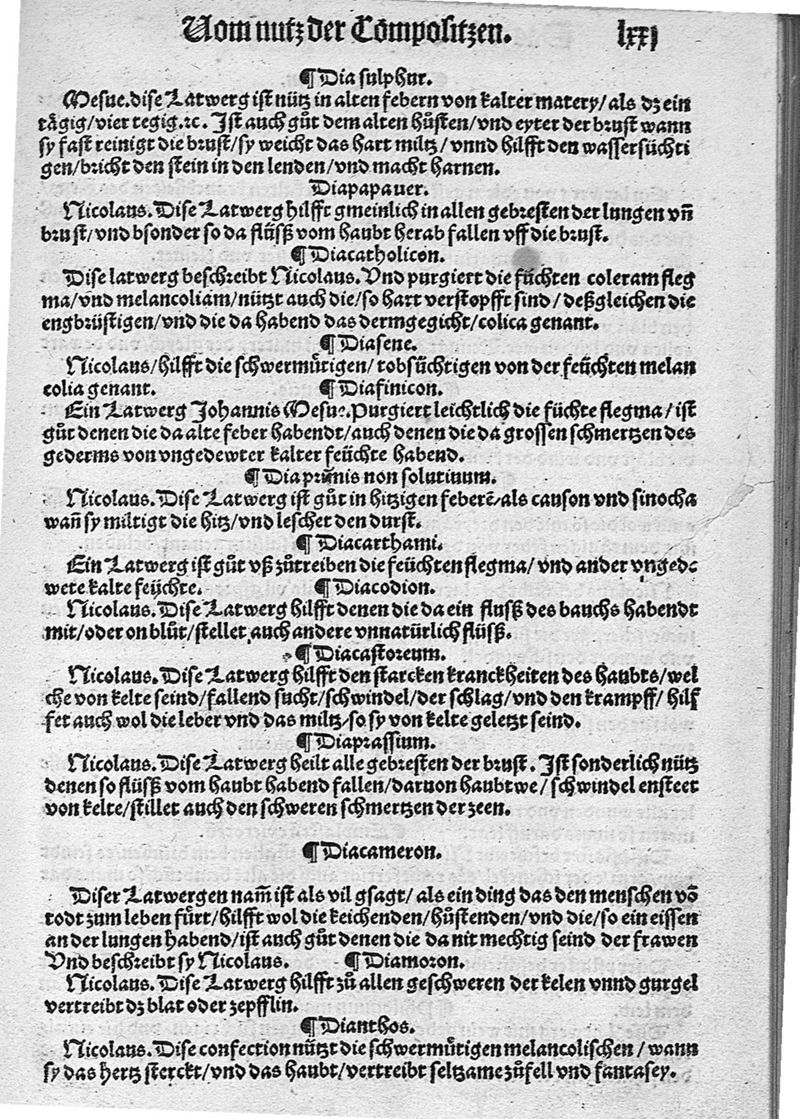 Vom nutz der Compositzen. lxxj
¶ Dia sulphur.
Mesue. dise Latwerg ist nütz in alten febern von kalter matery/ als dz ein
tägig/vier tegig.⁊c. Ist auch gůt dem alten hůsten/vnd eyter der brust wann
sy fast reinigt die brust/sy weicht das hart miltz/ vnnd hilfft den wassersüchti
gen/bricht den stein in den lenden/vnd macht harnen.
Diapapauer.
Nicolaus. Dise Latwerg hilfft gmeinlich in allen gebresten der lungen vñ
brust/vnd bsonder so da flüsß vom haubt herab fallen vff die brust.
¶ Diacatholicon.
Dise latwerg beschreibt Nicolaus. Vnd purgiert die füchten coleram fleg
ma/vnd melancoliam/nützt auch die/so hart verstopfft sind/ deßgleichen die
engbrüstigen/vnd die da habend das dermgegicht/colica genant.
¶ Diasene.
Nicolaus/hilfft die schwermůtigen/ tobsüchtigen von der feüchten melan
colia genant. ¶ Diafinicon.
Ein Latwerg Johannis Mesue. Purgiert leichtlich die füchte flegma/ ist
gůt denen die da alte feber habendt/auch denen die da grossen schmertzen des
gederms von vngedewter kalter feüchte habend.
¶ Diaprunis non solutiuum.
Nicolaus. Dise Latwerg ist gůt in hitzigen feberẽ/als causon vnd sinocha
wañ sy miltigt die hitz/vnd leschet den durst.
¶ Diacarthami.
Ein Latwerg ist gůt vß zůtreiben die feüchten flegma/ vnd ander vngede
wete kalte feüchte. ¶ Diacodion.
Nicolaus. Dise Latwerg hilfft denen die da ein flusß des bauchs habendt
mit/oder on blůt/stellet auch andere vnnatürlich flüsß.
¶ Diacastoreum.
Nicolaus. Dise Latwerg hilfft den starcken kranckheiten des haubts/wel
che von kelte seind/fallend sucht/schwindel/der schlag/vnd den krampff/ hilf
fet auch wol die leber vnd das miltz/so sy von kelte geletzt seind.
¶ Diaprassium.
Nicolaus. Dise Latwerg heilt alle gebresten der brust. Ist sonderlich nütz
denen so flüsß vom haubt habend fallen/daruon haubtwe/ schwindel ensteet
von kelte/stillet auch den schweren schmertzen der zeen.
¶ Diacameron.
Diser Latwergen nam̃ ist als vil gsagt/ als ein ding das den menschen võ
todt zum leben fürt/hilfft wol die keichenden/hůstenden/vnd die/so ein eissen
an der lungen habend/ist auch gůt denen die da nit mechtig seind der frawen
Vnd beschreibt sy Nicolaus. ¶ Diamoron.
Nicolaus. Dise Latwerg hilfft zů allen geschweren der kelen vnnd gurgel
vertreibt dz blat oder zepfflin.
¶ Dianthos.
Nicolaus. Dise confection nützt die schwermůtigen melancolischen / wann
sy das hertz sterckt/vnd das haubt/vertreibt seltzame zůfell vnd fantasey.